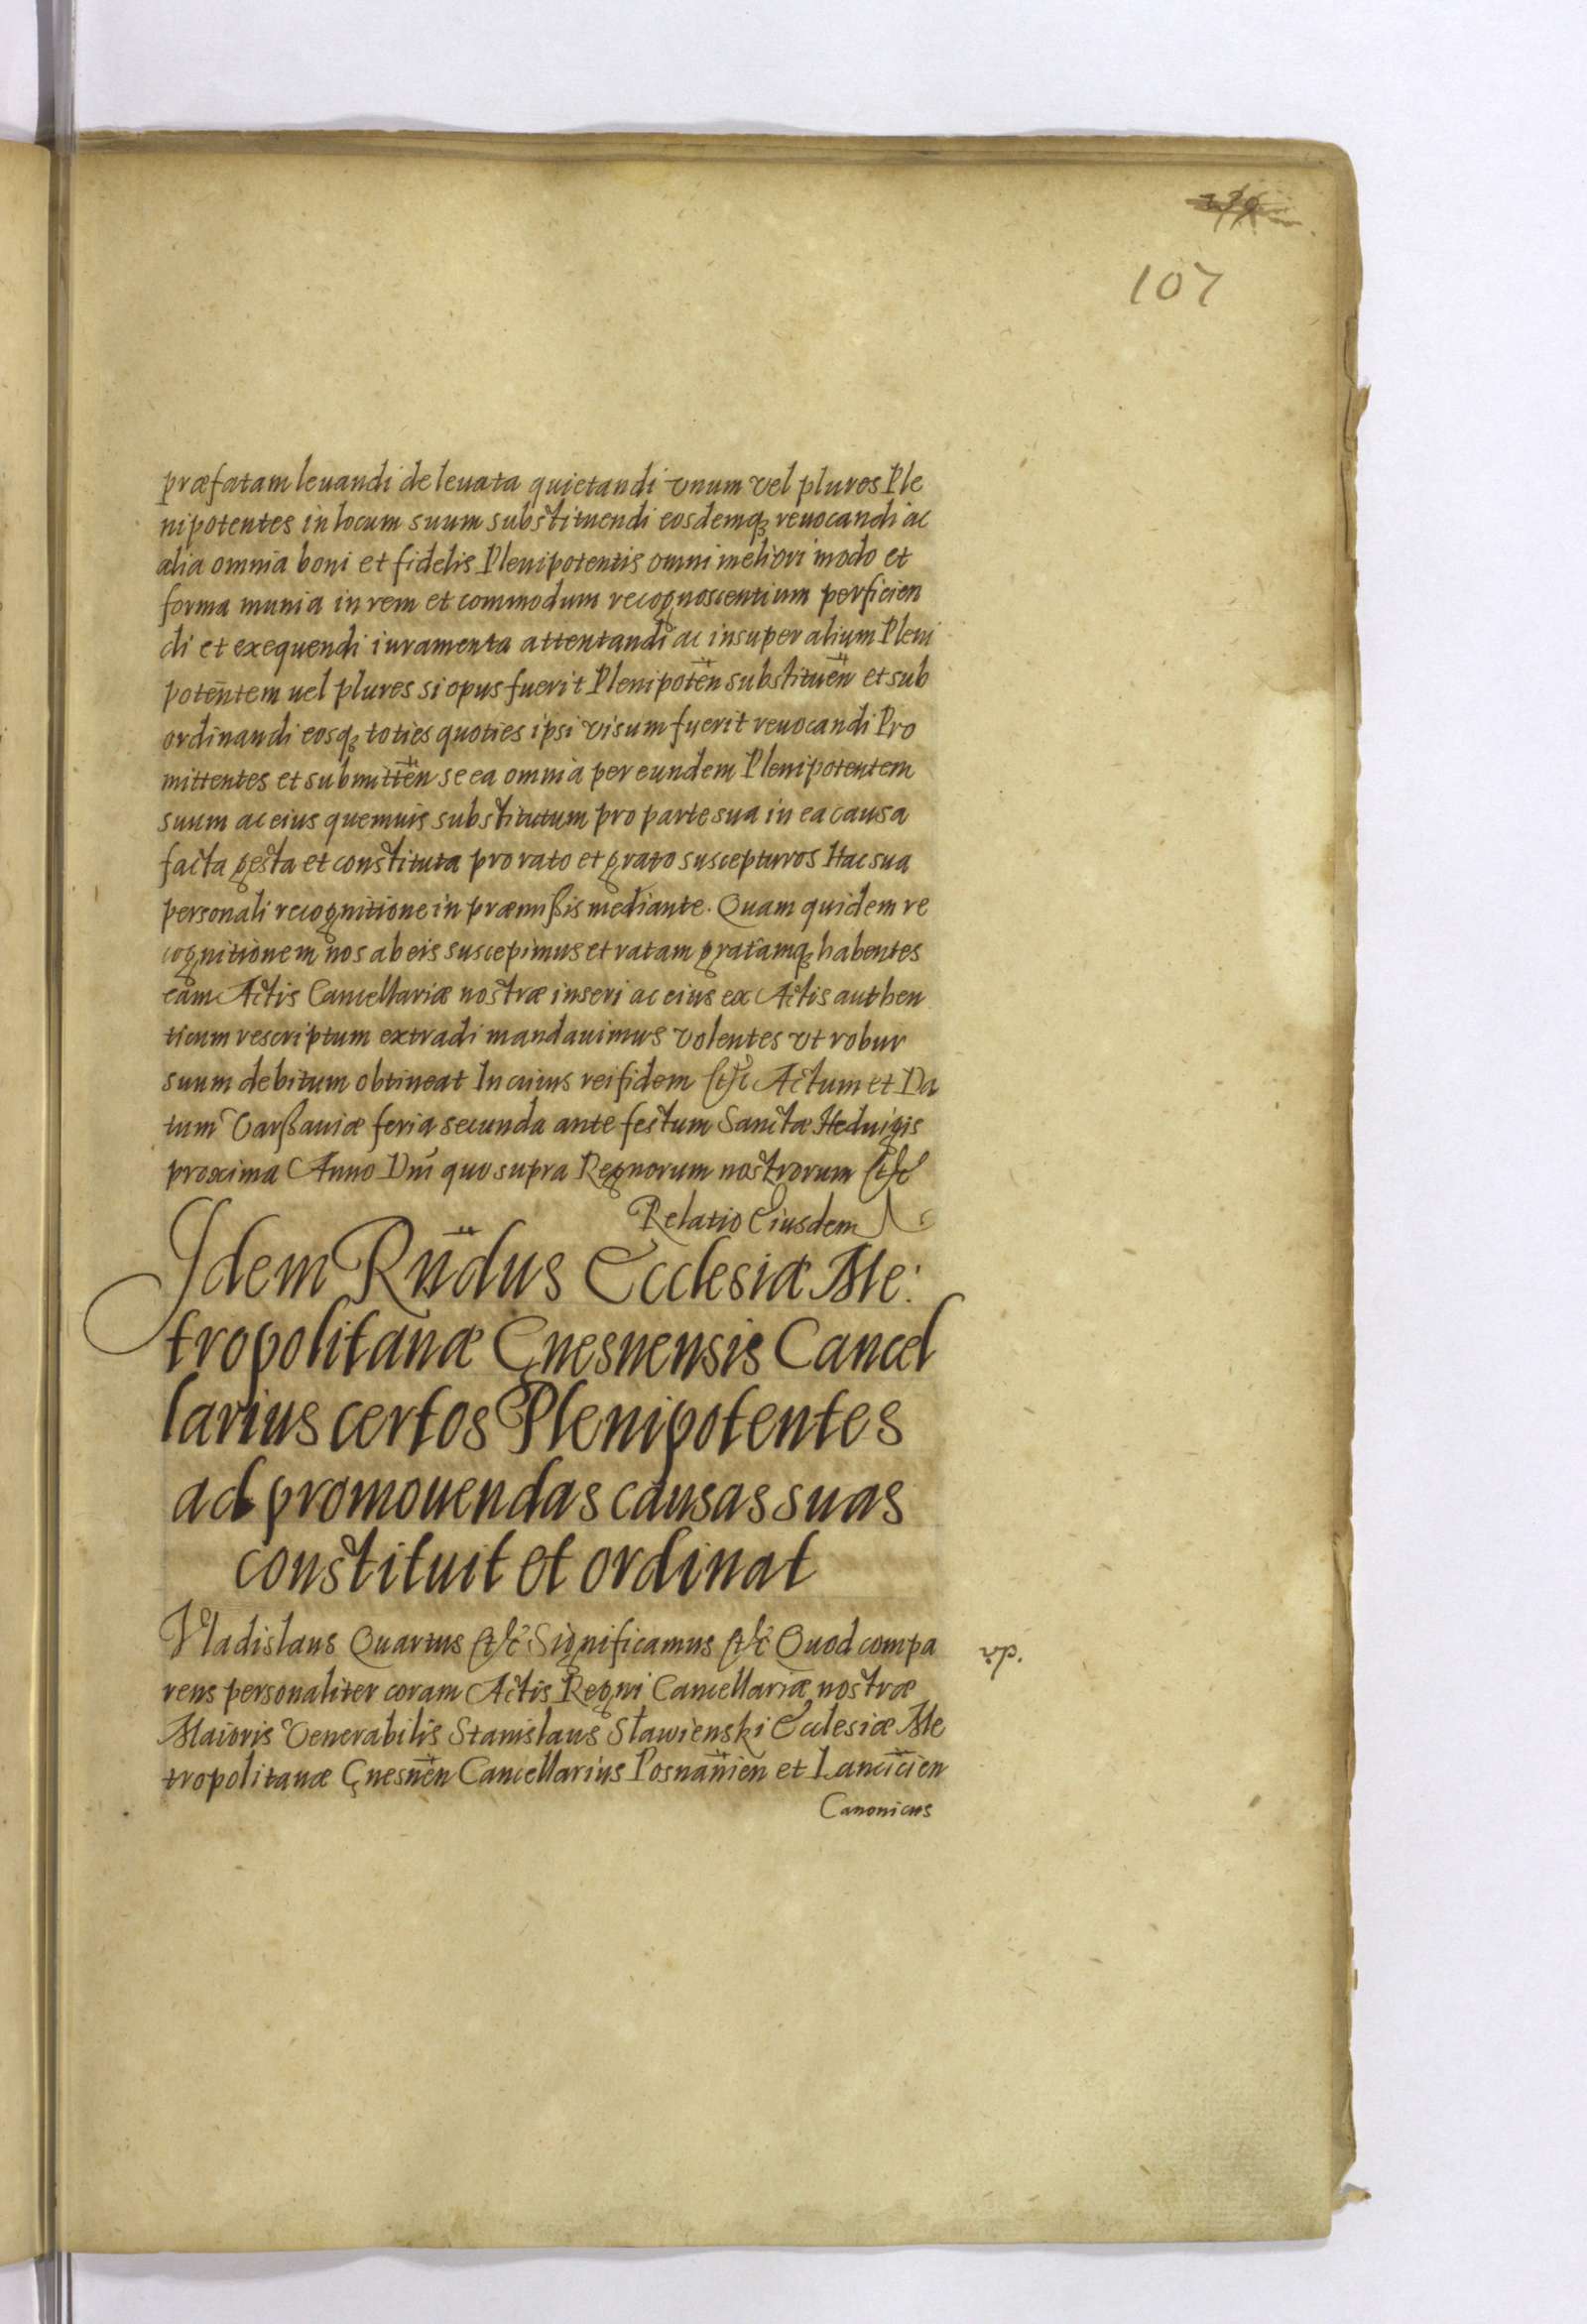 107
præfatam leuandi de leuata quietandi vnum vel plures Ple
nipotentes in locum suum substituendi eosdemq₃ reuocandi ac
alia omnia boni et fidelis Plenipotentis omni meliori modo et
forma munia in rem et commodum recognoscentium perficien
di et exequendi iuramenta attentandi ac insuper alium Pleni
potentem uel plures si opus fuerit Plenipoten̄ substituen̄ et sub
ordinandi eosq₃ toties quoties ipsi visum fuerit reuocandi Pro
mittentes et submitten̄ se ea omnia per eundem Plenipotentem
suum ac eius quemuis substitutum pro parte sua in ea causa
facta gesta et constituta pro rato et grato suscepturos Hac sua
personali recognitione in præmißis mediante. Quam quidem re
cognitionem nos ab eis suscepimus et ratam gratamq₃ habentes
eam Actis Cancellariæ nostræ inseri ac eius ex Actis authen
ticum rescriptum extradi mandauimus volentes vt robur
suum debitum obtineat In cuius rei fidem etc Actum et Da
tum Varßauiæ feria secunda ante festum Sanctæ Heduigis
proxima Anno Dnī quo supra Regnorum nostrorum etc
Relatio Eiusdem
Idem Rn̄dus Ecclesiæ Me:
tropolitanæ Gnesnensis Cancel
larius certos Plenipotentes
ad promouendas causas suas
constituit et ordinat
Vladislaus Quartus etc Significamus etc Quod compa
rens personaliter coram Actis Regni Cancellariæ nostræ
Maioris Venerabilis Stanislaus Sławienski Ecclesiæ Me
tropolitanæ Gnesnen̄ Cancellarius Posnanien̄ et Lancicien̄
Canonicus